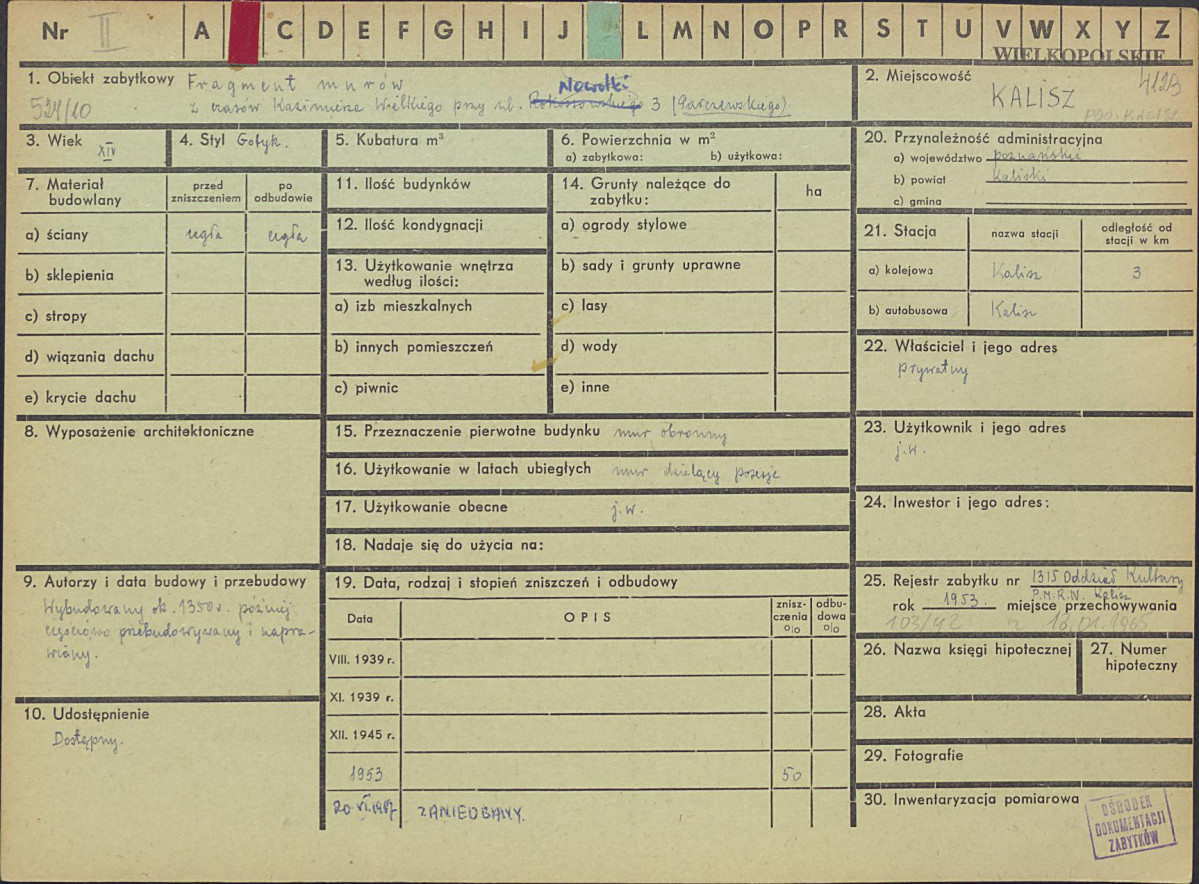 Nr II A C D E F G H I J L M N O P R S T U V W X Y Z
WIELKOPOLSKIE
1. Obiekt zabytkowy Fragment murów
Nowotki
z czasów Kazimierza Wielkiego przy ul. Rokossowskiego 3 (Parczewskiego).
524/10
2. Miejscowość
KALISZ
pow. KALISZ
3. Wiek XIV
4. Styl Gotyk.
5. Kubatura m³
6. Powierzchnia w m²
a) zabytkowa: b) użytkowa:
7. Materiał budowlany
przed zniszczeniem
po odbudowie
a) ściany cegła cegła
b) sklepienia
c) stropy
d) wiązania dachu
e) krycie dachu
8. Wyposażenie architektoniczne
9. Autorzy i data budowy i przebudowy
Wybudowany ok. 1350 r. później
częściowo przebudowywany i napra-
wiany.
10. Udostępnienie
Dostępny.
11. Ilość budynków
12. Ilość kondygnacji
13. Użytkowanie wnętrza
według ilości:
a) izb mieszkalnych
b) innych pomieszczeń
c) piwnic
14. Grunty należące do
zabytku:
ha
a) ogrody stylowe
b) sady i grunty uprawne
c) lasy
d) wody
e) inne
15. Przeznaczenie pierwotne budynku mur obronny
16. Użytkowanie w latach ubiegłych mur dzielący posesje
17. Użytkowanie obecne j.w.
18. Nadaje się do użycia na:
19. Data, rodzaj i stopień zniszczeń i odbudowy
Data OPIS znisz-
czenia
%
odbu-
dowa
%
VIII. 1939 r.
XI. 1939 r.
XII. 1945 r.
1953 50
20.VI.1967 ZANIEDBANY.
20. Przynależność administracyjna
a) województwo poznańskie
b) powiat kaliski
c) gmina
21. Stacja nazwa stacji odległość od
stacji w km
a) kolejowa Kalisz 3
b) autobusowa Kalisz
22. Właściciel i jego adres
prywatny
23. Użytkownik i jego adres
j.w.
24. Inwestor i jego adres:
25. Rejestr zabytku nr 1315 Oddział Kultury
P.M.R.N. Kalisz
rok 1953. miejsce przechowywania
103/42 z 18.01.1965
26. Nazwa księgi hipotecznej
27. Numer
hipoteczny
28. Akta
29. Fotografie
30. Inwentaryzacja pomiarowa
OŚRODEK
DOKUMENTACJI
ZABYTKÓW